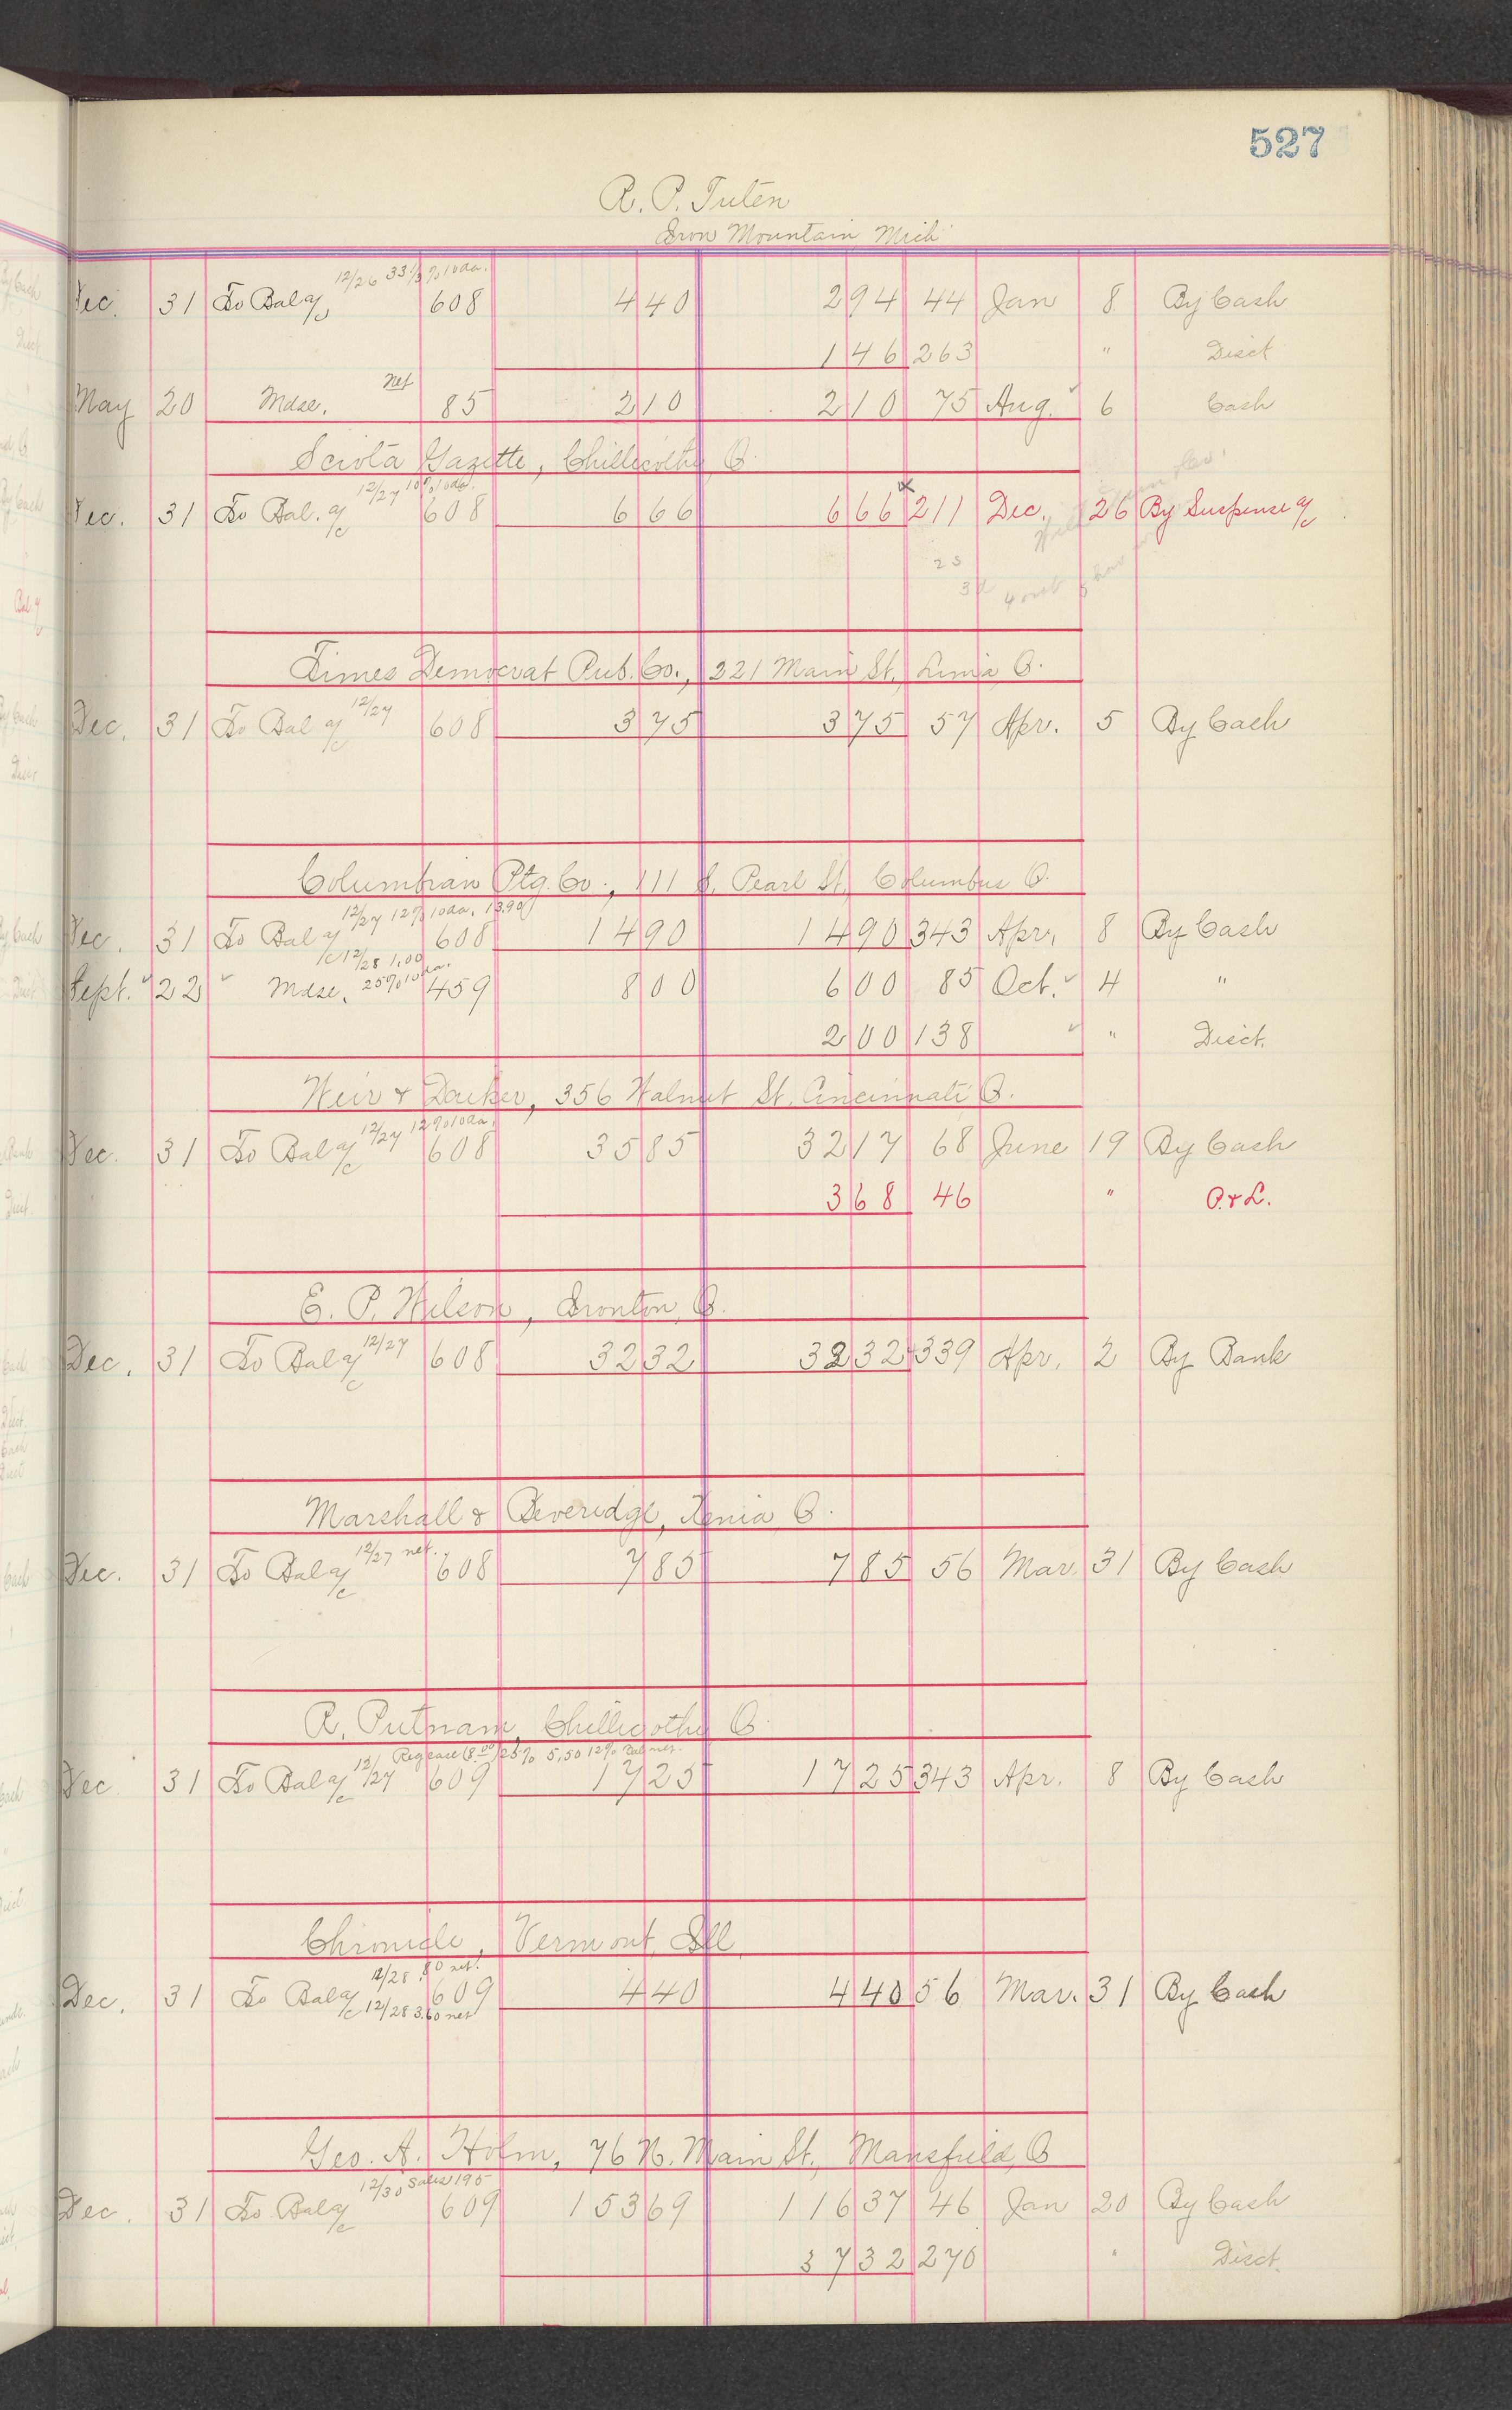 527
R. P. Tuten
Iron Mountain Mich
12/26 33 1/3 % 10 da.
Dec. 31 To Bal a/c 608 4 40 2 94 44 Jan 8 By Cash
1 46 263 " Disct
May 20 Mdse. net 85 2 10 2 10 75 Aug. 6 Cash
Sciota Gazette, Chillicothe O.
12/27 10% 10 da.
Dec. 31 To Bal. a/c 608 6 66 6 66 211 Dec. 26 By Suspense a/c
Times Democrat Pub. Co., 221 Main St, Lima O.
Dec. 31 To Bal a/c 12/27 608 3 75 3 75 57 Apr. 5 By Cash
Columbian Ptg. Co., 111 S. Pearl St, Columbus O.
12/27 12% 10 da. 13.90
Dec. 31 To Bal a/c 608 14 90 14 90 343 Apr. 8 By Cash
12/28 1.00
Sept. 22 Mdse. 25% 10 da. 459 8 00 6 00 85 Oct. 4 "
2 00 138 " Disct.
Weir & Decker, 356 Walnut St, Cincinnati O.
12/27 12% 10 da.
Dec. 31 To Bal a/c 608 35 85 32 17 68 June 19 By Cash
3 68 46 " P. & L.
E. P. Wilson, Ironton, O.
Dec. 31 To Bal a/c 12/27 608 32 32 32 32 339 Apr. 2 By Bank
Marshall & Beveridge, Xenia O.
Dec. 31 To Bal a/c 12/27 net. 608 7 85 7 85 56 Mar. 31 By Cash
R. Putnam, Chillicothe O.
12/27 25% 5.50 12% Bal net.
Dec 31 To Bal a/c 609 17 25 17 25 343 Apr. 8 By Cash
Chronicle, Vermont, Ill
12/28 .80 net.
Dec. 31 To Bal a/c 609 4 40 4 40 56 Mar. 31 By Cash
12/28 3.60 net
Geo. A. Holm, 76 N. Main St., Mansfield, O
12/30 Sales 195
Dec. 31 To Bal a/c 609 153 69 116 37 46 Jan 20 By Cash
37 32 270 " Disct.